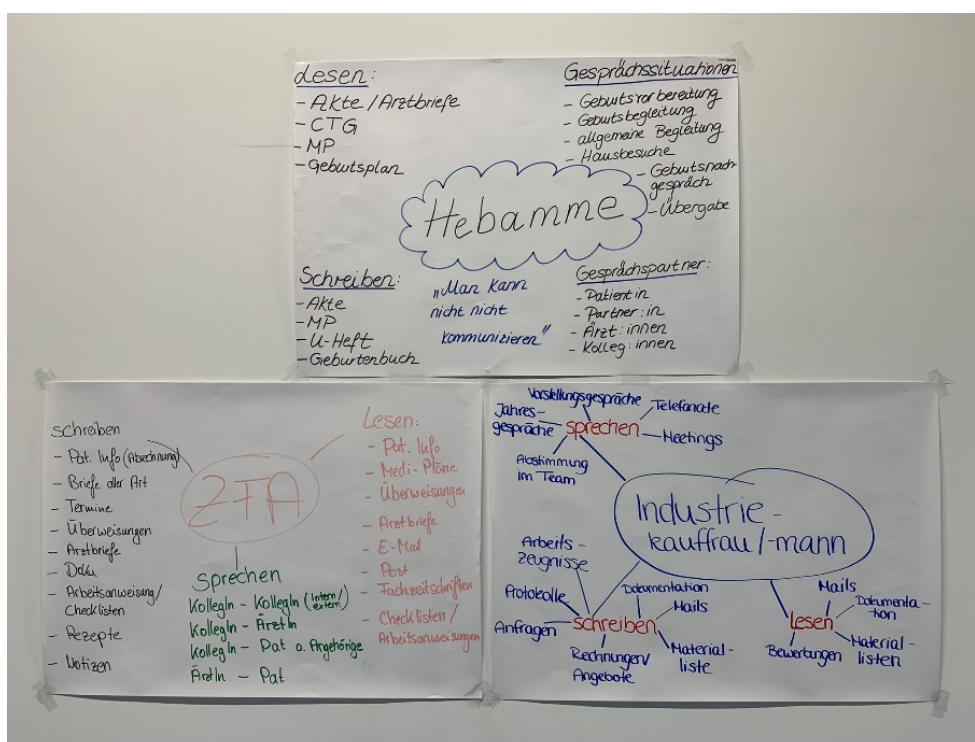 Lesen:
- Akte / Arztbriefe
- CTG
- MP
- Geburtsplan
Gesprächssituationen
- Geburtsvorbereitung
- Geburtsbegleitung
- allgemeine Begleitung
- Hausbesuche
- Geburtsnach-
gespräch
- Übergabe
Hebamme
Schreiben:
- Akte
- MP
- U-Heft
- Geburtenbuch
„Man kann
nicht nicht
kommunizieren"
Gesprächspartner:
- Patientin
- Partner:in
- Ärzt:innen
- Kolleg:innen
schreiben
- Pat. Info (Abrechnung)
- Briefe aller Art
- Termine
- Überweisungen
- Arztbriefe
- Doku
- Arbeitsanweisung/
Checklisten
- Rezepte
- Notizen
ZFA
Sprechen
KollegIn - KollegIn (intern/
extern)
KollegIn - ÄrztIn
KollegIn - Pat o. Angehörige
ÄrztIn - Pat
Lesen:
- Pat. Info
- Medi-Pläne
- Überweisungen
- Arztbriefe
- E-Mail
- Post
- Fachzeitschriften
- Checklisten /
Arbeitsanweisungen
Industrie-
kauffrau/-mann
sprechen
Vorstellungsgespräche
Telefonate
Meetings
Jahres-
gespräche
Abstimmung
im Team
schreiben
Arbeits-
zeugnisse
Protokolle
Anfragen
Dokumentation
Mails
Material-
liste
Rechnungen/
Angebote
lesen
Mails
Dokumenta-
tion
Material-
listen
Bewertungen